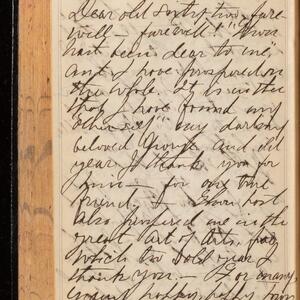 Dear old sixty two, fare-
well - farewell! "Thou
hast been dear to me",
and I have prospered on
the whole. It is in thee
that I have found my
"other self" my darling
beloved George and, old
year I thank you for
him - for one true
friend. - Thou hast
also prospered me in the
great art of arts, for
which too old year I
thank you. - For many,
many happy happy